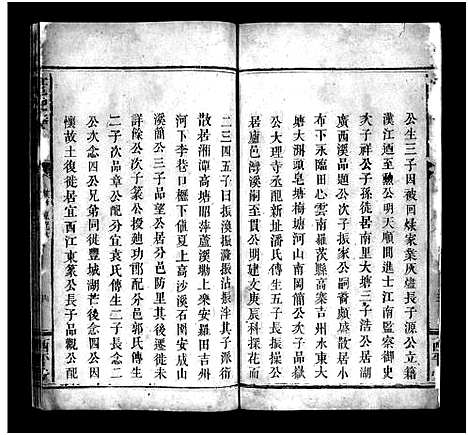 公生三子因被回煤家業灰燼長子源公立籍
漢江迺至勲公明天順間進士江南監察御史
次子祥公子孫徒居南里大塘三子浩公居湖
廣西溪品題公次子振家公嗣喬頗盛散居小
布下永臨田心雲南羅茨縣高寨吉州水東大
塘大湖頭皂塘梅塘河山南岡簡公次子品嶽
公大理寺丞配新址潘氏傳生五子長振儒原
居廬邑灣溪嗣至貫公明建文庚辰科探花而
二三四五子曰振漢振濳振沾振泮其子派衍
散居湘潭高塘昭萍蘆溪黝上來安羅田吉州
河下李巷口櫪下傾夏上高沙溪石圍安成山
溪簡公三子品望公居分邑防里其後遷徙未
詳餘公次子篆公授廸功郎配分邑郭氏傳生
二子次品章公配分宜袁氏傳生二子長念三
公次念四公兄弟同徙豐城湖芒後念四公因
懷故土復徙居宜西江東篆公長子品觀公配